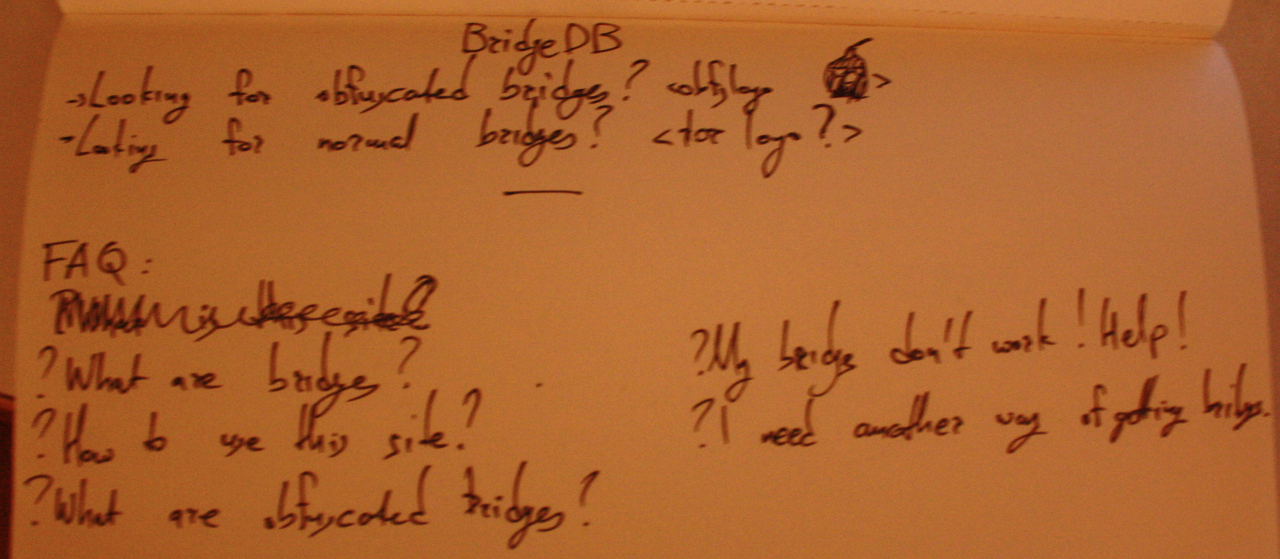 BridgeDB
->Looking for obfuscated bridges? <obfslogo >
-Looking for normal bridges? <tor logo?>
FAQ:
?What are bridges?
?How to use this site?
?What are obfuscated bridges?
?My bridges don't work! Help!
?I need another way of getting bridges.